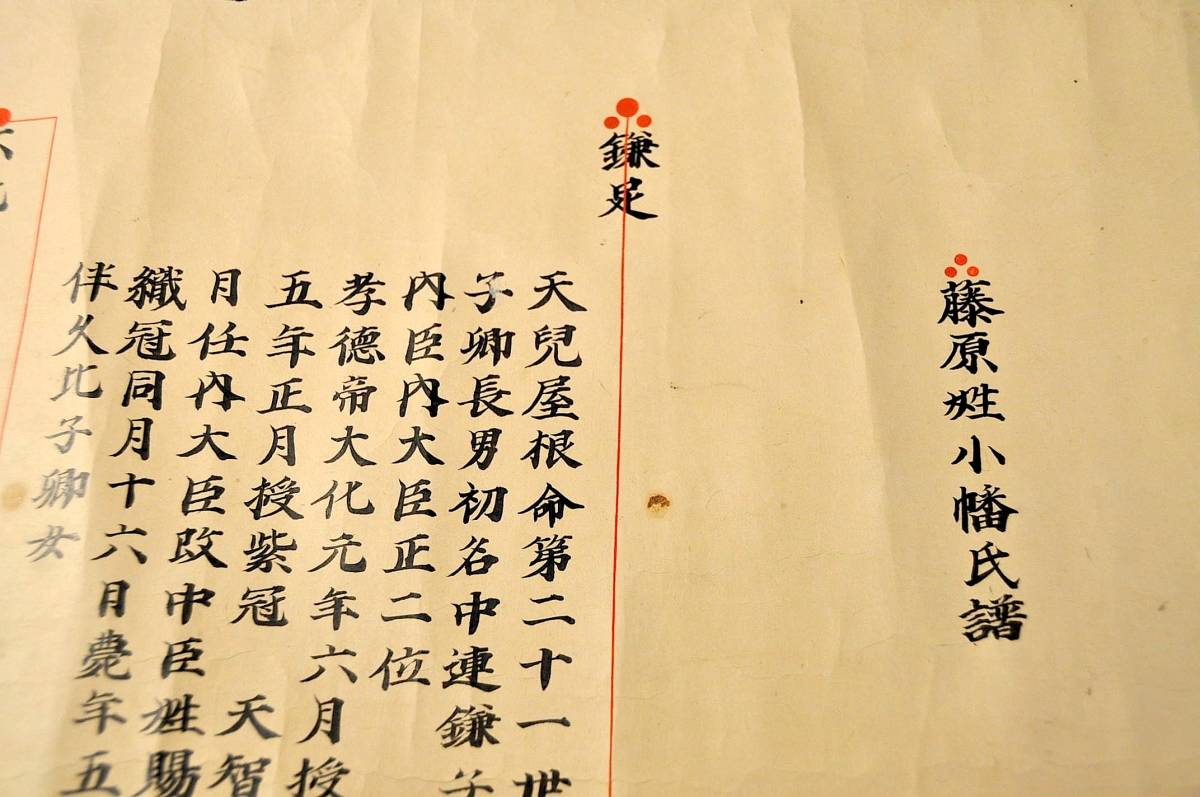 藤原姓小幡氏譜
鎌足
天兒屋根命第二十一世
子卿長男初名中連鎌子
內臣內大臣正二位
孝德帝大化元年六月授
五年正月授紫冠　天智
月任內大臣改中臣姓賜
織冠同月十六月薨年五
伴久比子卿女